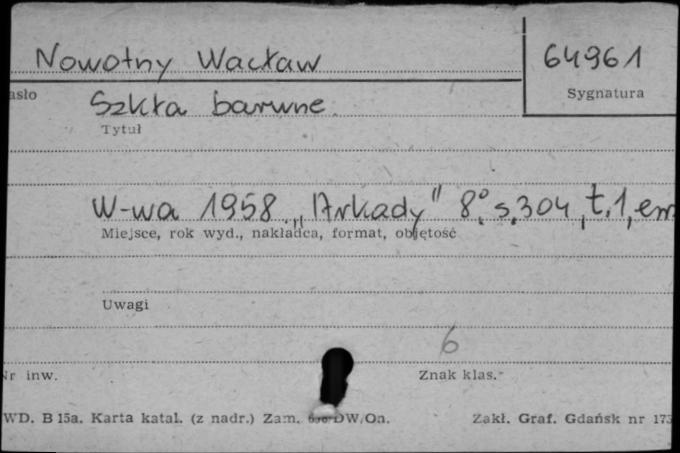 Nowotny Wacław 64961
asło Sygnatura
Szkła barwne.
Tytuł
W-wa 1958. „Arkady" 8° s. 304, t. 1, em
Miejsce, rok wyd., nakładca, format, objętość
Uwagi
6
Nr inw. Znak klas.
WD. B 15a. Karta katal. (z nadr.) Zam. DW/On. Zakł. Graf. Gdańsk nr 173